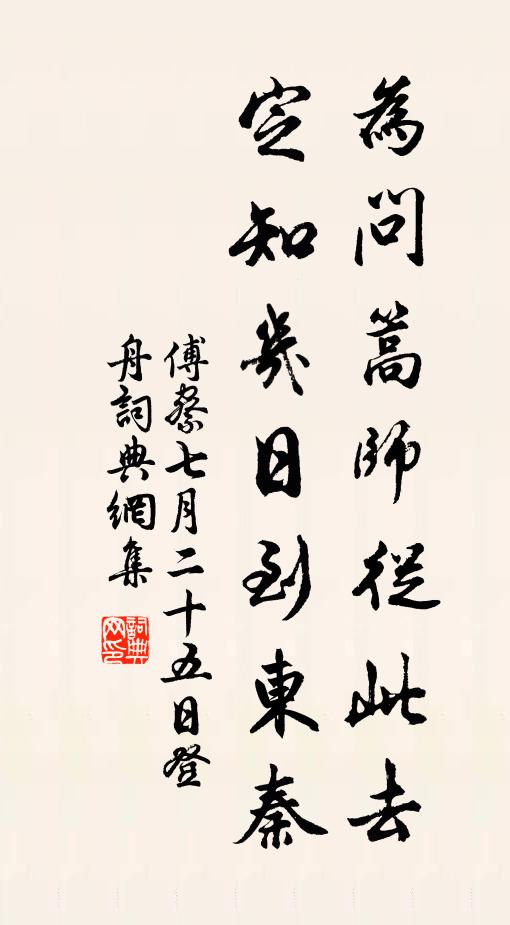 為問篙師從此去
定知幾日到東秦
傅察七月二十五日登
舟詞典網集
詞典
网印